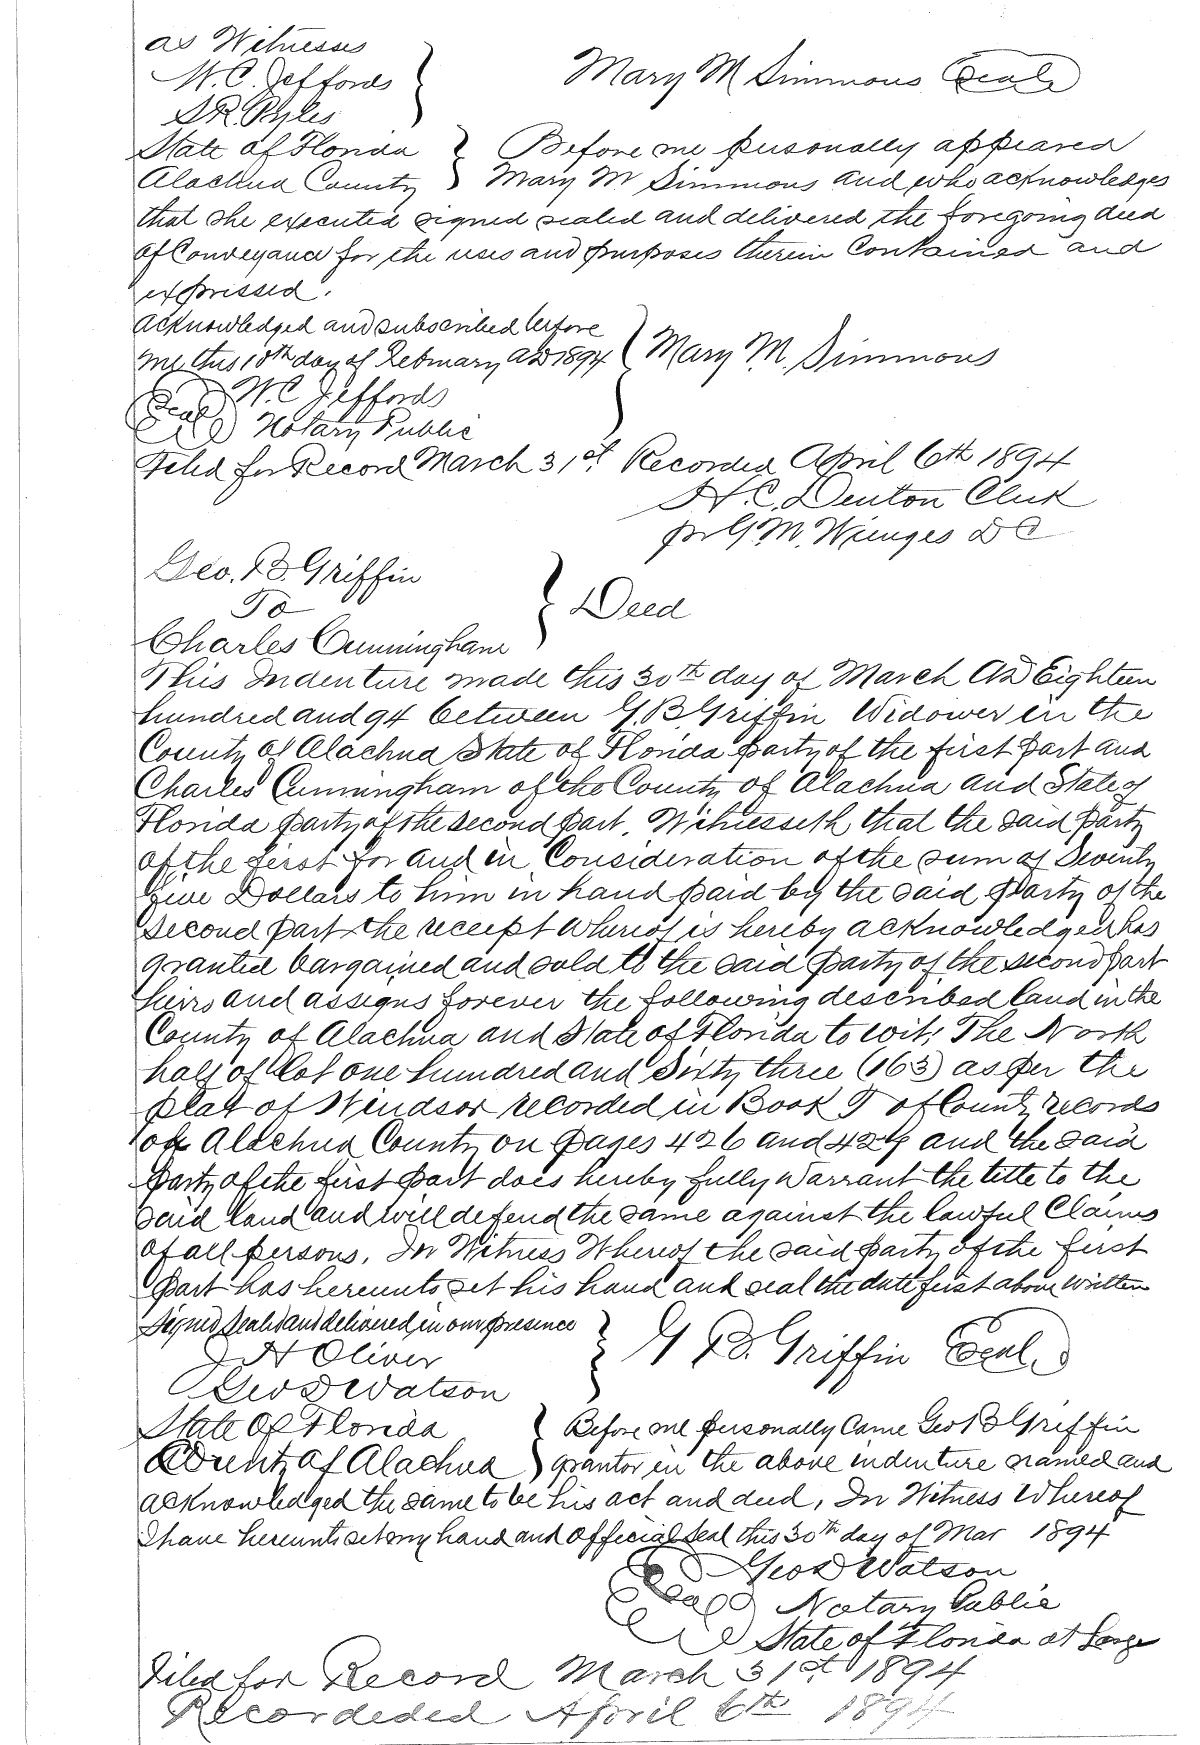 as Witnesses
W. C. Jeffords
S R. Pyles
Mary M Simmons Seal
State of Florida
Alachua County
Before me personally appeared
Mary M Simmons and who acknowledges
that she executed signed sealed and delivered the foregoing deed
of Conveyance for the uses and purposes therein Contained and
expressed.
acknowledged and subscribed before
me this 10th day of February AD 1894
Mary M. Simmons
W. C Jeffords
Seal Notary Public
Filed for Record March 31st Recorded April 6th 1894
H. C. Denton Clerk
pr G. M. Wienges D C
Geo. B. Griffin
To
Charles Cunningham
Deed
This Indenture made this 30th day of March AD Eighteen
hundred and 94 between G. B Griffin Widower in the
County of Alachua State of Florida party of the first part and
Charles Cunningham of the County of Alachua and State of
Florida party of the second part. Witnesseth that the said party
of the first for and in Consideration of the sum of Seventy
five Dollars to him in hand paid by the said party of the
second part the receipt whereof is hereby acknowledged has
granted bargained and sold to the said party of the second part
heirs and assigns forever the following described land in the
County of Alachua and State of Florida to wit; The North
half of Lot one hundred and Sixty three (163) as per the
plat of Windsor recorded in Book T of County records
of Alachua County on pages 426 and 429 and the said
party of the first part does hereby fully warrant the title to the
said land and will defend the same against the lawful Claims
of all persons. In Witness Whereof the said party of the first
part has hereunto set his hand and seal the date first above written
Signed sealed and delivered in our presence
J H Oliver
Geo D Watson
G B. Griffin Seal
State of Florida
County of Alachua
Before me personally Came Geo B Griffin
grantor in the above indenture named and
acknowledged the same to be his act and deed, In Witness Whereof
I have hereunto set my hand and official seal this 30th day of Mar 1894
Geo D Watson
Seal Notary Public
State of Florida at Large
Filed for Record March 31st 1894
Recordeded April 6th 1894